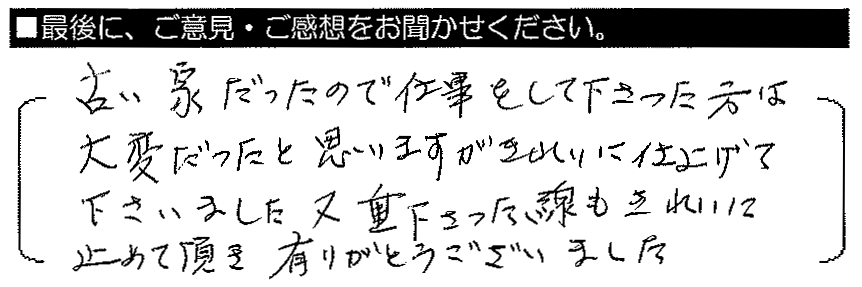 ■最後に、ご意見・ご感想をお聞かせください。
古い家だったので仕事をして下さった方は
大変だったと思いますがきれいに仕上げて
下さいました又垂下さった線もきれいに
止めて頂き有りがとうございました